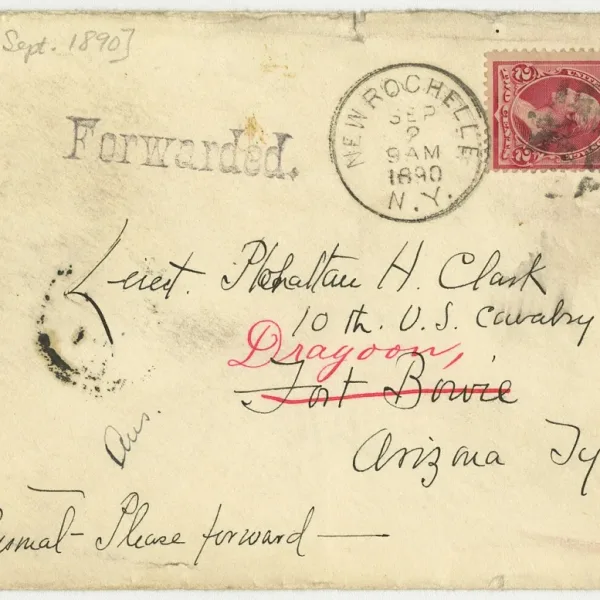 Sept. 1890]
Forwarded.
NEW ROCHELLE
SEP
2
9AM
1890
N.Y.
Lieut. Powhattan H. Clark
10th. U.S. Cavalry
Dragoon,
Fort Bowie
Arizona Ty
Ans.
Please forward